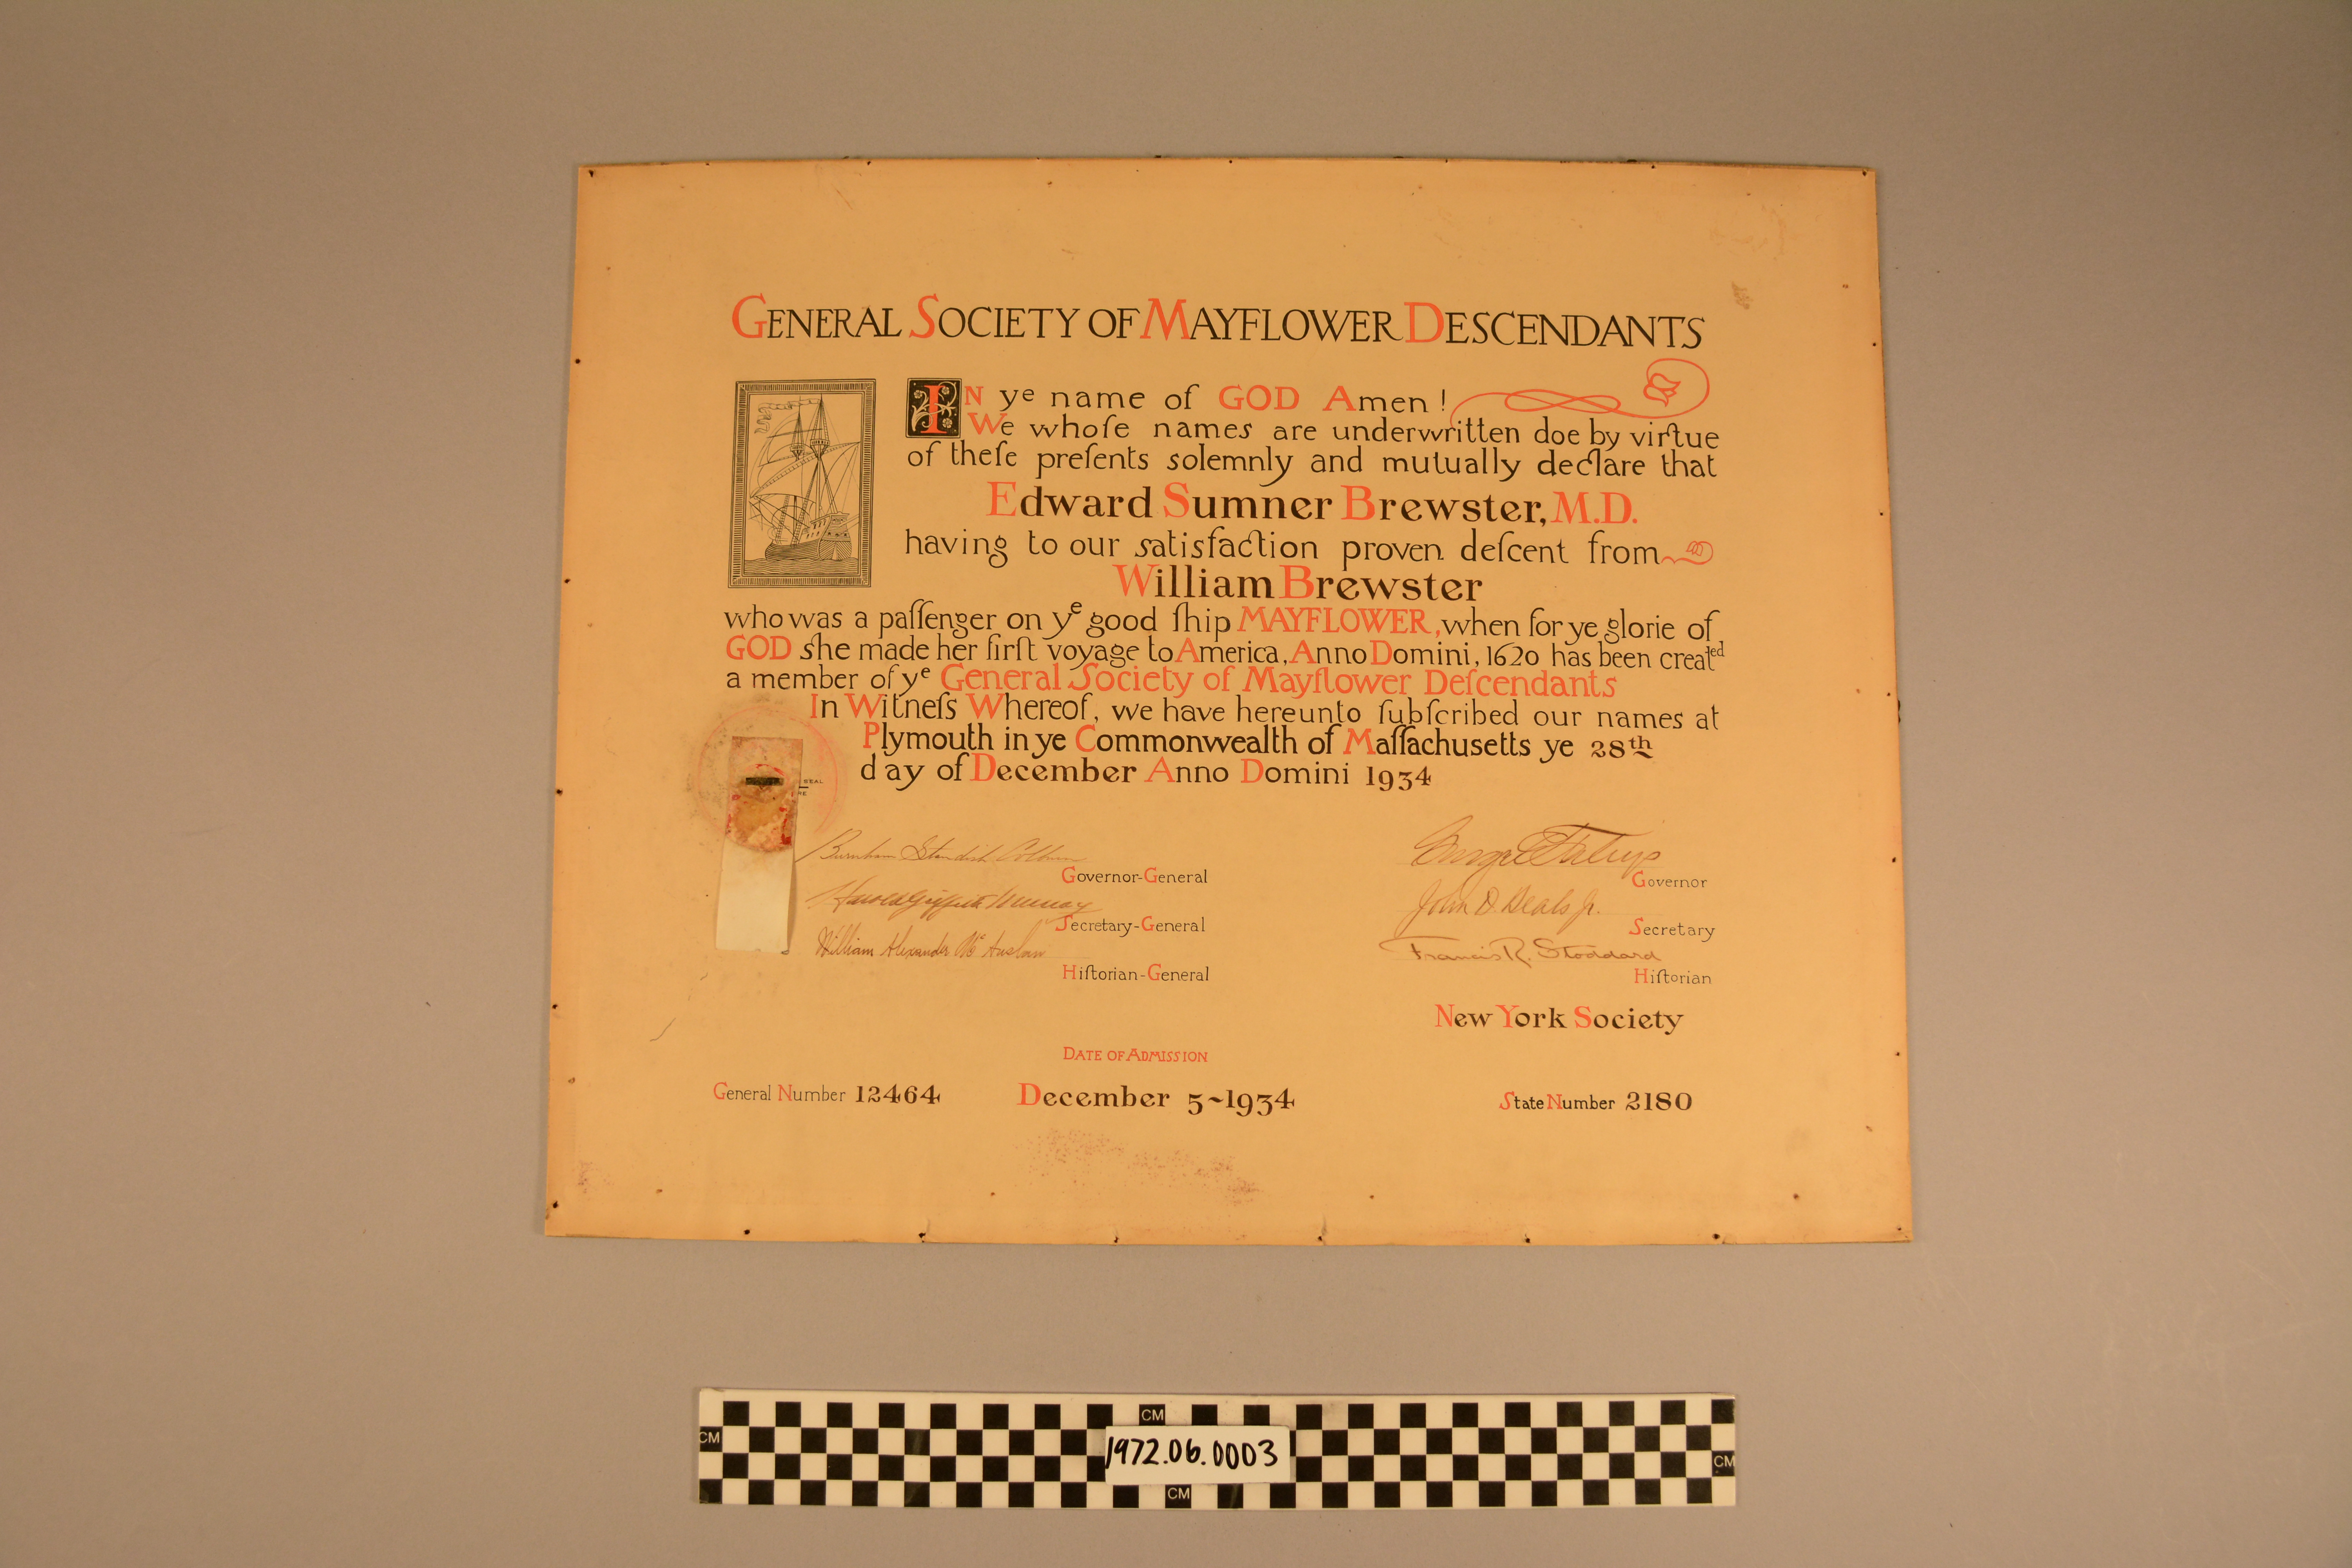 GENERAL SOCIETY OF MAYFLOWER DESCENDANTS
IN ye name of GOD Amen!
We whoſe names are underwritten doe by virtue
of theſe preſents solemnly and mutually declare that
Edward Sumner Brewster, M.D.
having to our satisfaction proven deſcent from
William Brewster
who was a paſſenger on ye good ſhip MAYFLOWER, when for ye glorie of
GOD she made her firſt voyage to America, Anno Domini, 1620 has been created
a member of ye General Society of Mayflower Deſcendants
In Witneſs Whereof, we have hereunto ſubſcribed our names at
Plymouth in ye Commonwealth of Maſſachusetts ye 28th
day of December Anno Domini 1934
SEAL
RE
Burnham Standish Colburn
Governor-General
Governor
Harold Griffith Murray
John D. Beals Jr.
Secretary-General
Secretary
William Alexander McAuslan
Francis R. Stoddard
Hiſtorian-General
Hiſtorian
New York Society
DATE OF ADMISSION
General Number 12464
December 5~1934
State Number 2180
CM
CM
1972.06.0003
CM
CM